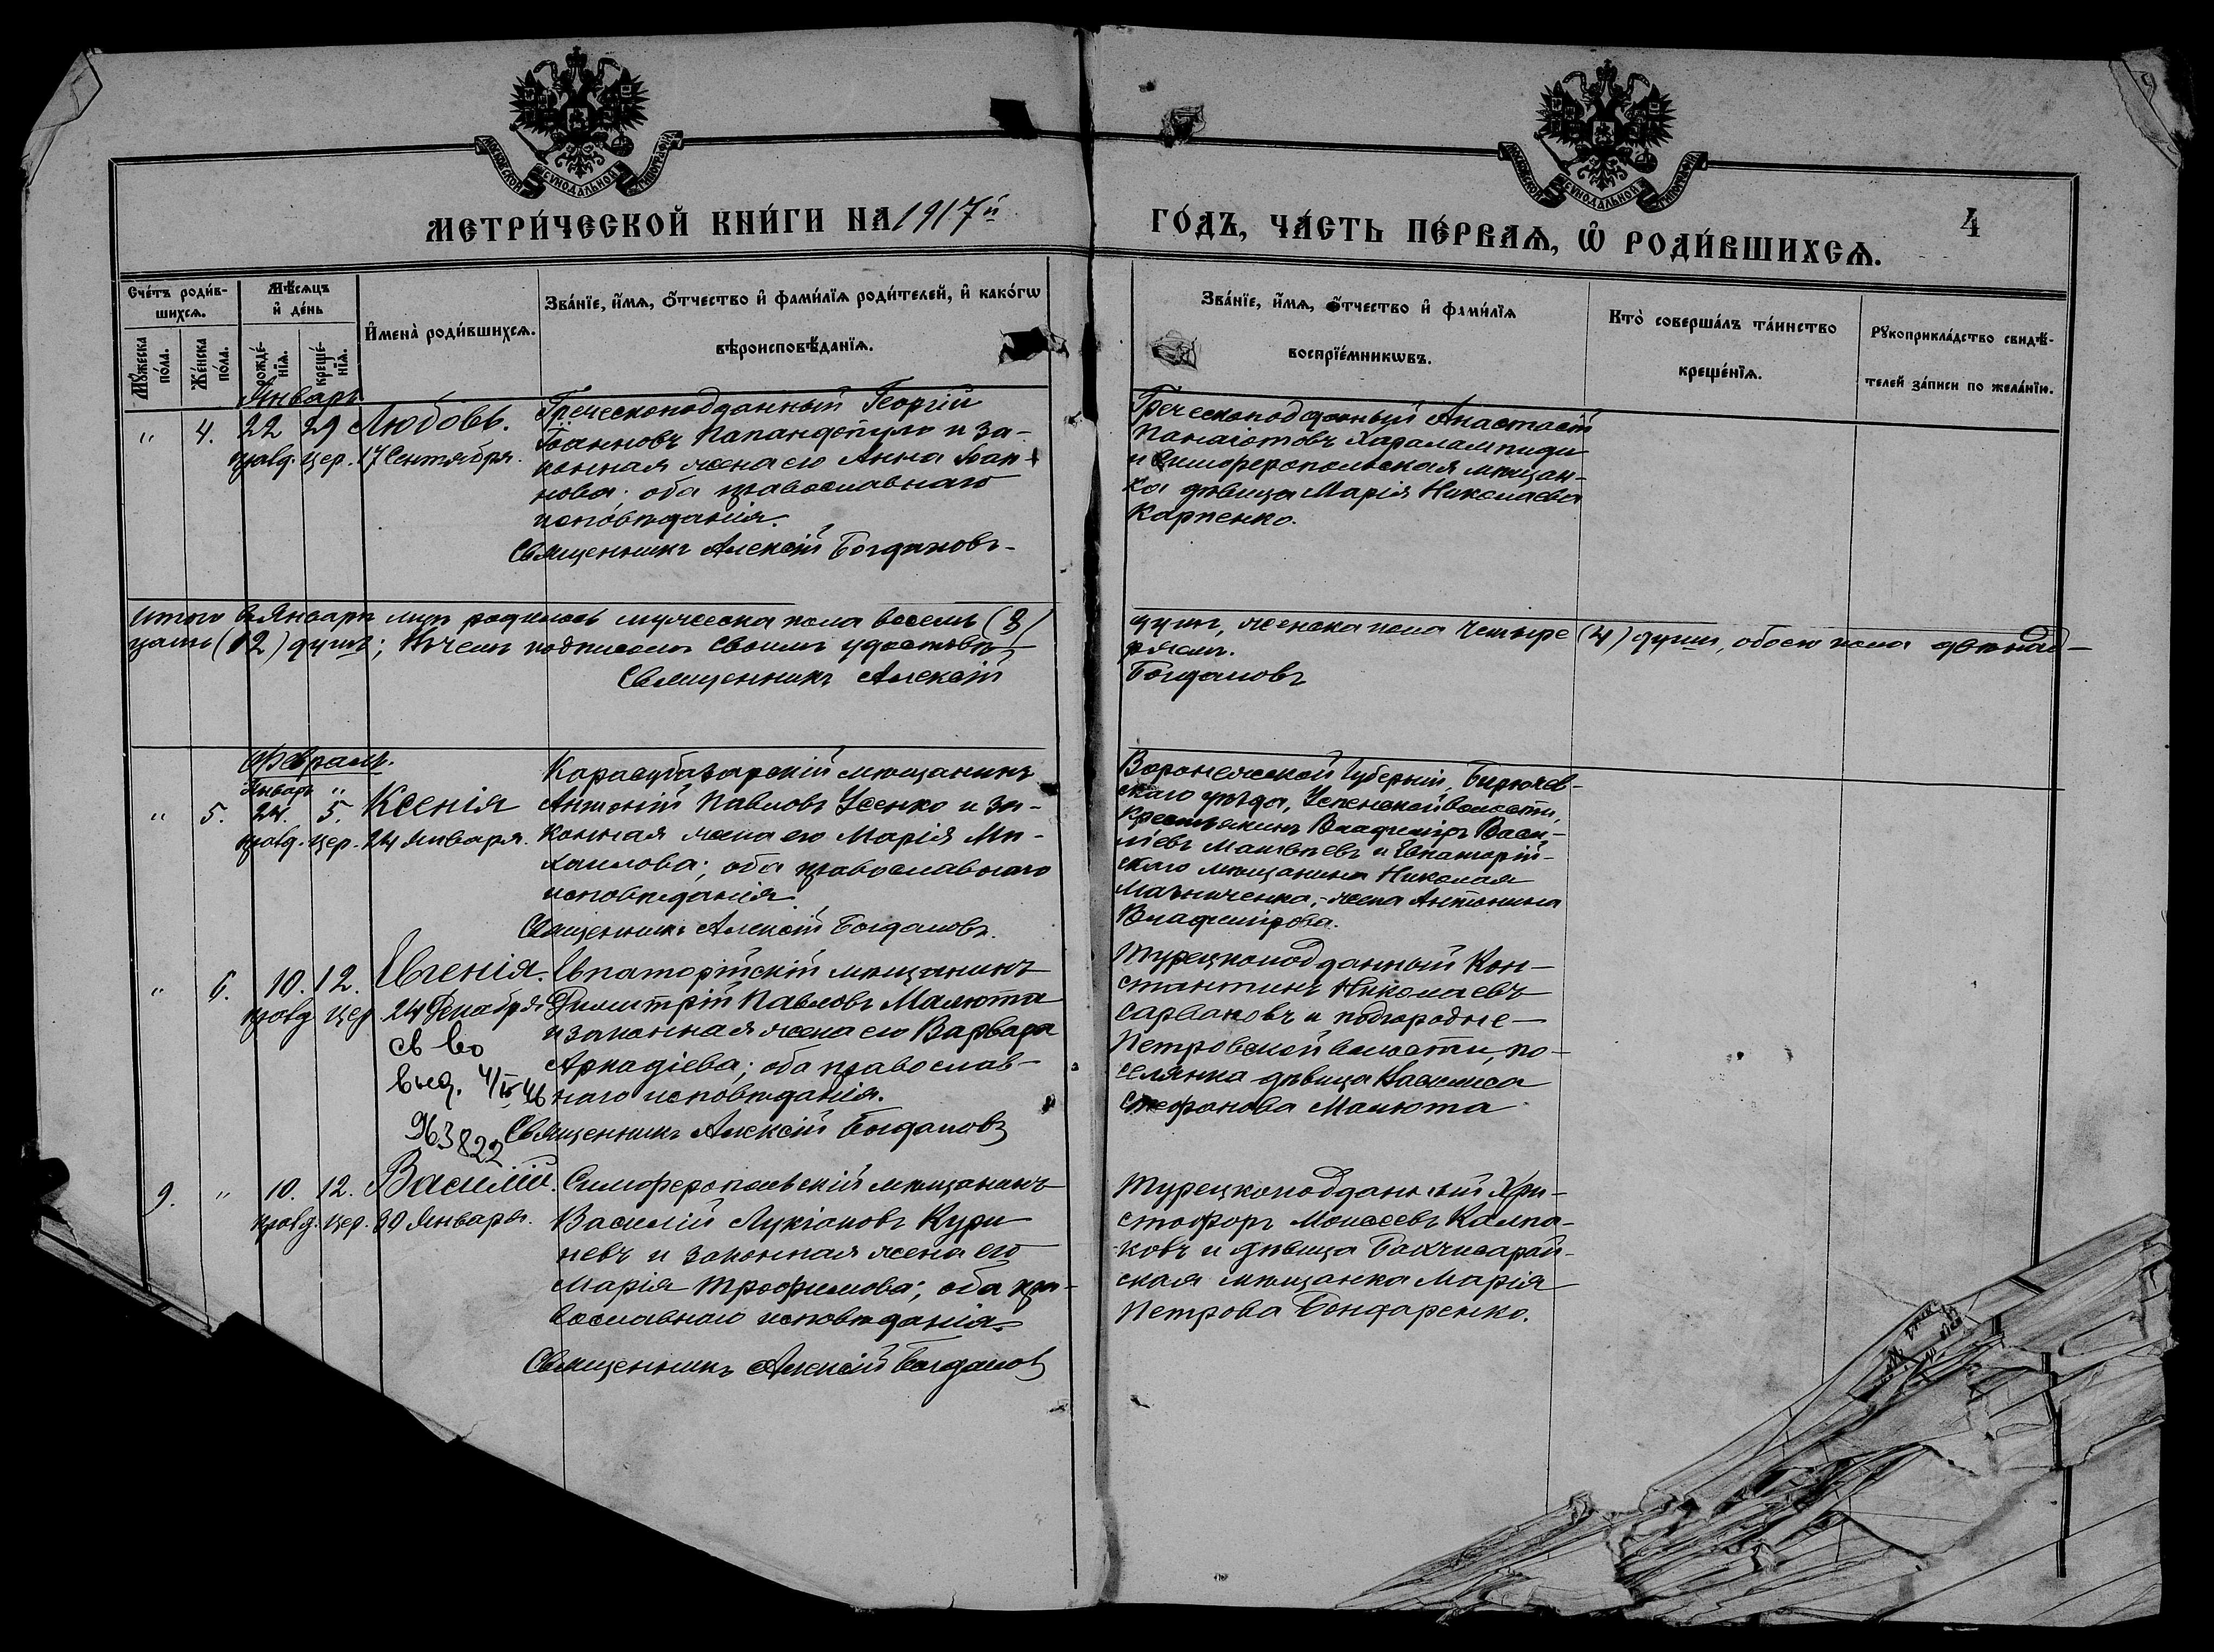 МОСКОВСКОЙ СѴНОДАЛЬНОЙ ТИПОГРАФІИ
МОСКОВСКОЙ СѴНОДАЛЬНОЙ ТИПОГРАФІИ
МЕТРИ́ЧЕСКОЙ КНИ́ГИ НА 1917й
ГО́ДЪ, ЧА́СТЬ ПЕ́РВАѦ, Ѽ РОДИ́ВШИХСѦ.
4
Сче́тъ роди́в-
шихсѧ.
Мѣ́сѧцъ
и҆ де́нь
Мꙋ́жеска
по́ла.
Же́нска
по́ла.
рожде́-
нїѧ.
креще́-
нїѧ.
И҆мена̀ роди́вшихсѧ.
Зва́нїе, и҆́мѧ, ѻ҆́тчество и҆ фами́лїѧ роди́телей, и҆ како́гѡ
вѣроисповѣ́данїѧ.
Зва́нїе, и҆́мѧ, ѻ҆́тчество и҆ фами́лїѧ
воспрїе́мникѡвъ.
Кто̀ соверша́лъ та́инство
креще́нїѧ.
Рꙋкоприкла́дство свидѣ́-
телей за́писи по жела́нїю.
Январь
" 4. 22 29 Любовь.
правд. цер. 17 Сентября.
Греческоподданный Георгій
Іоанновъ Папандопуло и за-
конная жена его Анна Іоан-
нова; оба православнаго
исповѣданія.
Священникъ Алексій Богдановъ
Греческоподданный Анастасій
Панаготовъ Харалампиди
и Симферопольская мѣщан-
ка дѣвица Марія Николаева
Карпенко.
Итого въ Январѣ мцѣ родилось мужеска пола восемь (8)
душъ, женска пола четыре (4) души, обоего пола двѣнад-
цать (12) душъ; въ чемъ подписомъ своимъ удостовѣ-
ряемъ.
Священникъ Алексій
Богдановъ
Февраль.
Январь "
" 5. 24. 5. Ксенія
правд. цер. 24 Января.
Карасубазарскій мѣщанинъ
Антоній Павловъ Усенко и за-
конная жена его Марія Ми-
хаилова; оба православнаго
исповѣданія.
Священникъ Алексій Богдановъ.
Воронежской Губерніи, Бирючев-
скаго уѣзда, Успенской волости,
крестьянинъ Владиміръ Васи-
ліевъ Матвѣевъ и Евпаторій-
скаго мѣщанина Николая
жена Антонина
Владимірова.
" 6. 10. 12. Евгенія.
правд цер 24 Декабря
св во
выд. 4/IV 46
963822
Евпаторійскій мѣщанинъ
Димитрій Павловъ Малюта
и законная жена его Варвара
Аркадіева; оба православ-
наго исповѣданія.
Священникъ Алексій Богдановъ
Турецкоподданный Кон-
стантинъ Николаевъ
и подгородне-
Петровской волости, по-
селянка дѣвица
Стефанова Малюта
9. " 10. 12. Василій.
правд. цер. 30 Января.
Симферопольскій мѣщанинъ
Василій Лукіановъ Кури
невъ и законная жена его
Марія Трофимова; оба пра-
вославнаго исповѣданія.
Священникъ Алексій Богдановъ
Турецкоподданный Хри-
стофоръ Моисеевъ Калпа-
ковъ и дѣвица Бахчисарай-
ская мѣщанка Марія
Петрова Бондаренко.